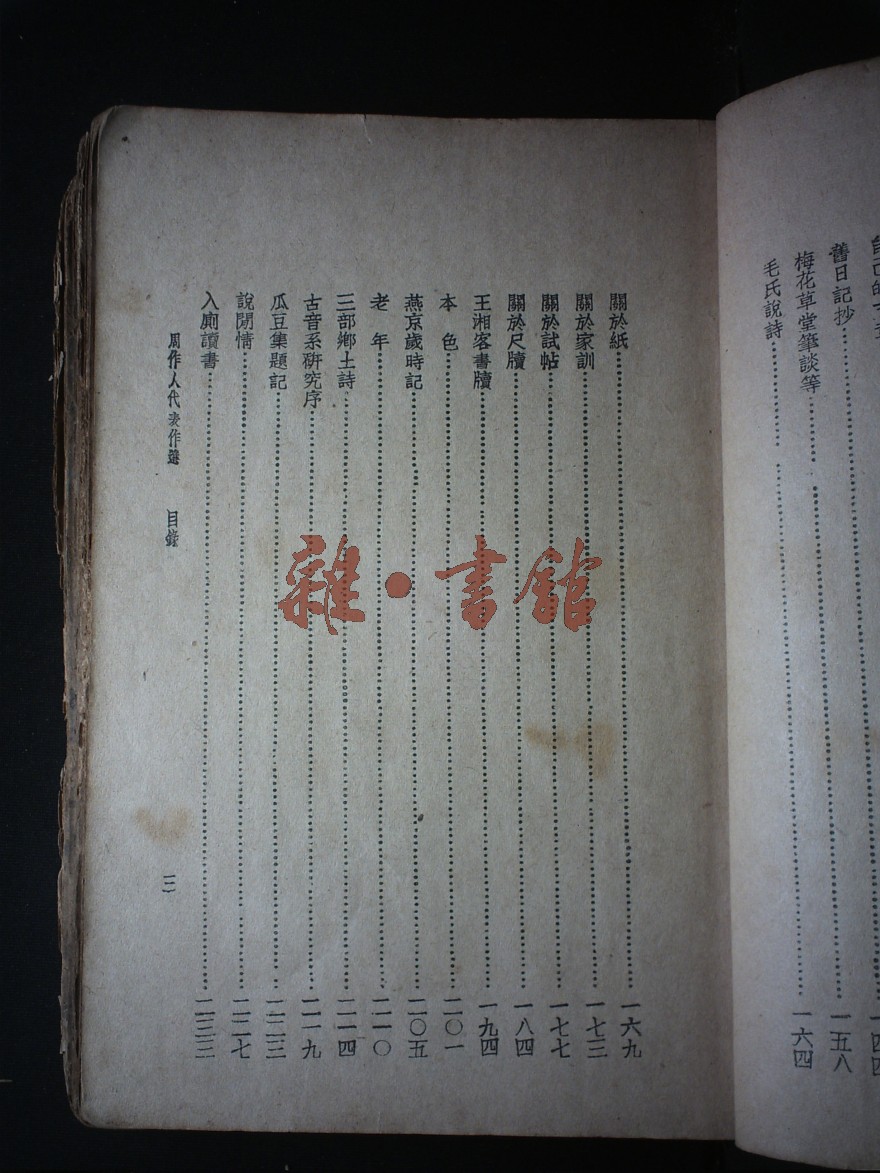 舊日記抄……一四四
梅花草堂筆談等……一五八
毛氏說詩……一六四
關於紙……一六九
關於家訓……一七三
關於試帖……一七七
關於尺牘……一八四
王湘客書牘……一九四
本色……二〇一
燕京歲時記……二〇五
老年……二一〇
三部鄉土詩……二一四
古音系研究序……二一九
瓜豆集題記……二二三
說閒情……二二七
入廁讀書……二三三
周作人代表作選 目錄 三
雜·書館